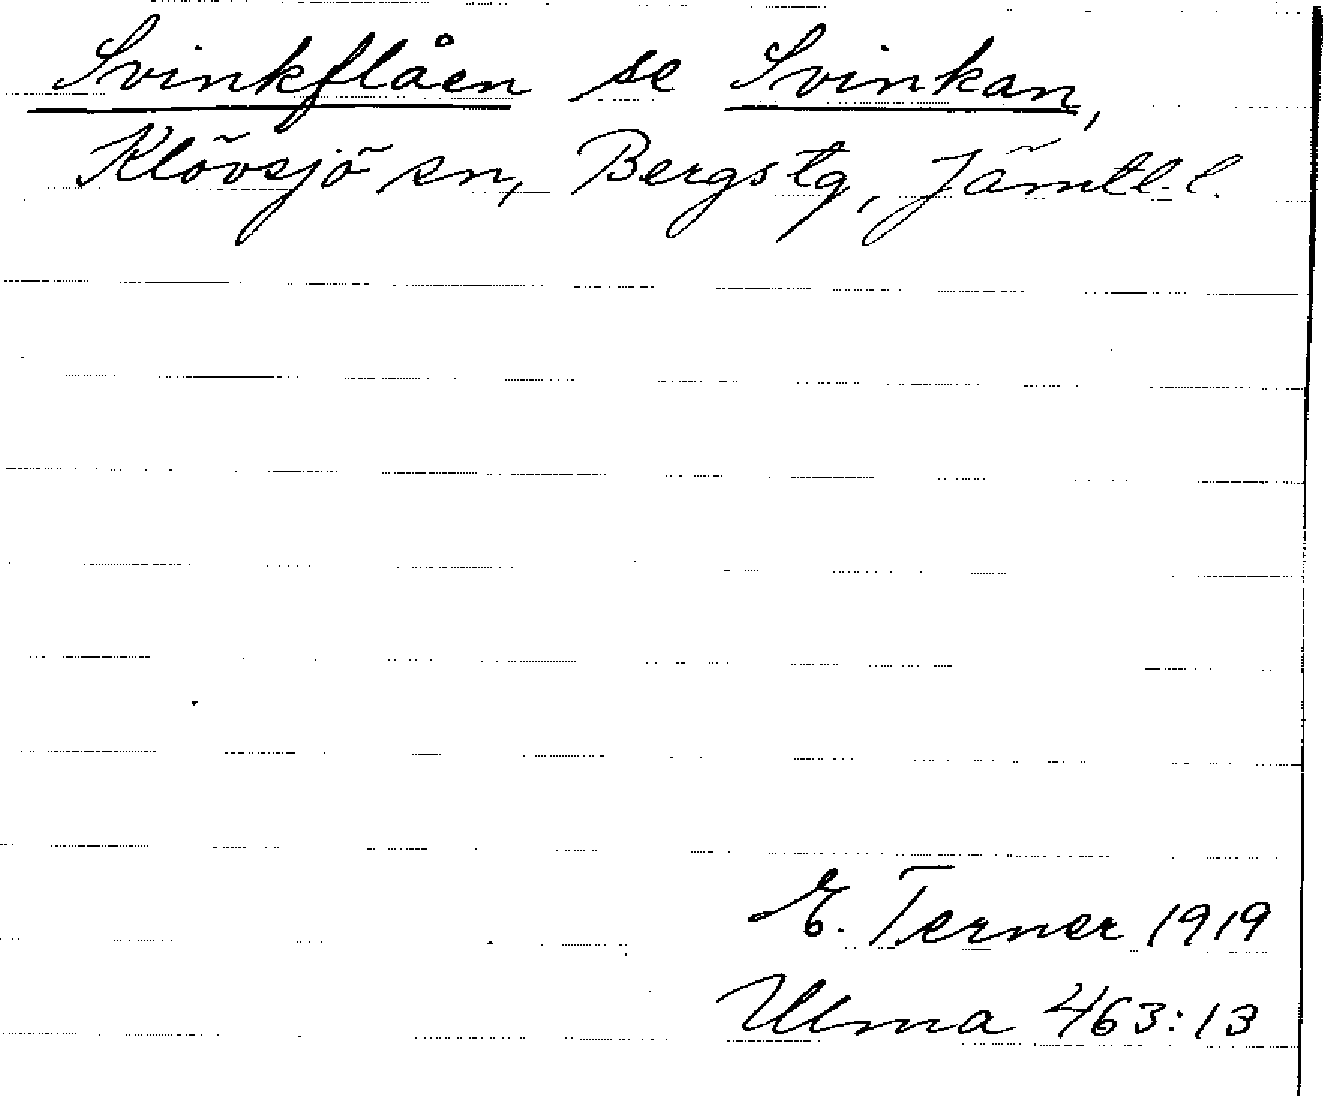 Svinkflåen se Svinkan,
Klövsjö sn, Bergs tg, Jämtl. l.
E. Terner 1919
Ulma 463:13